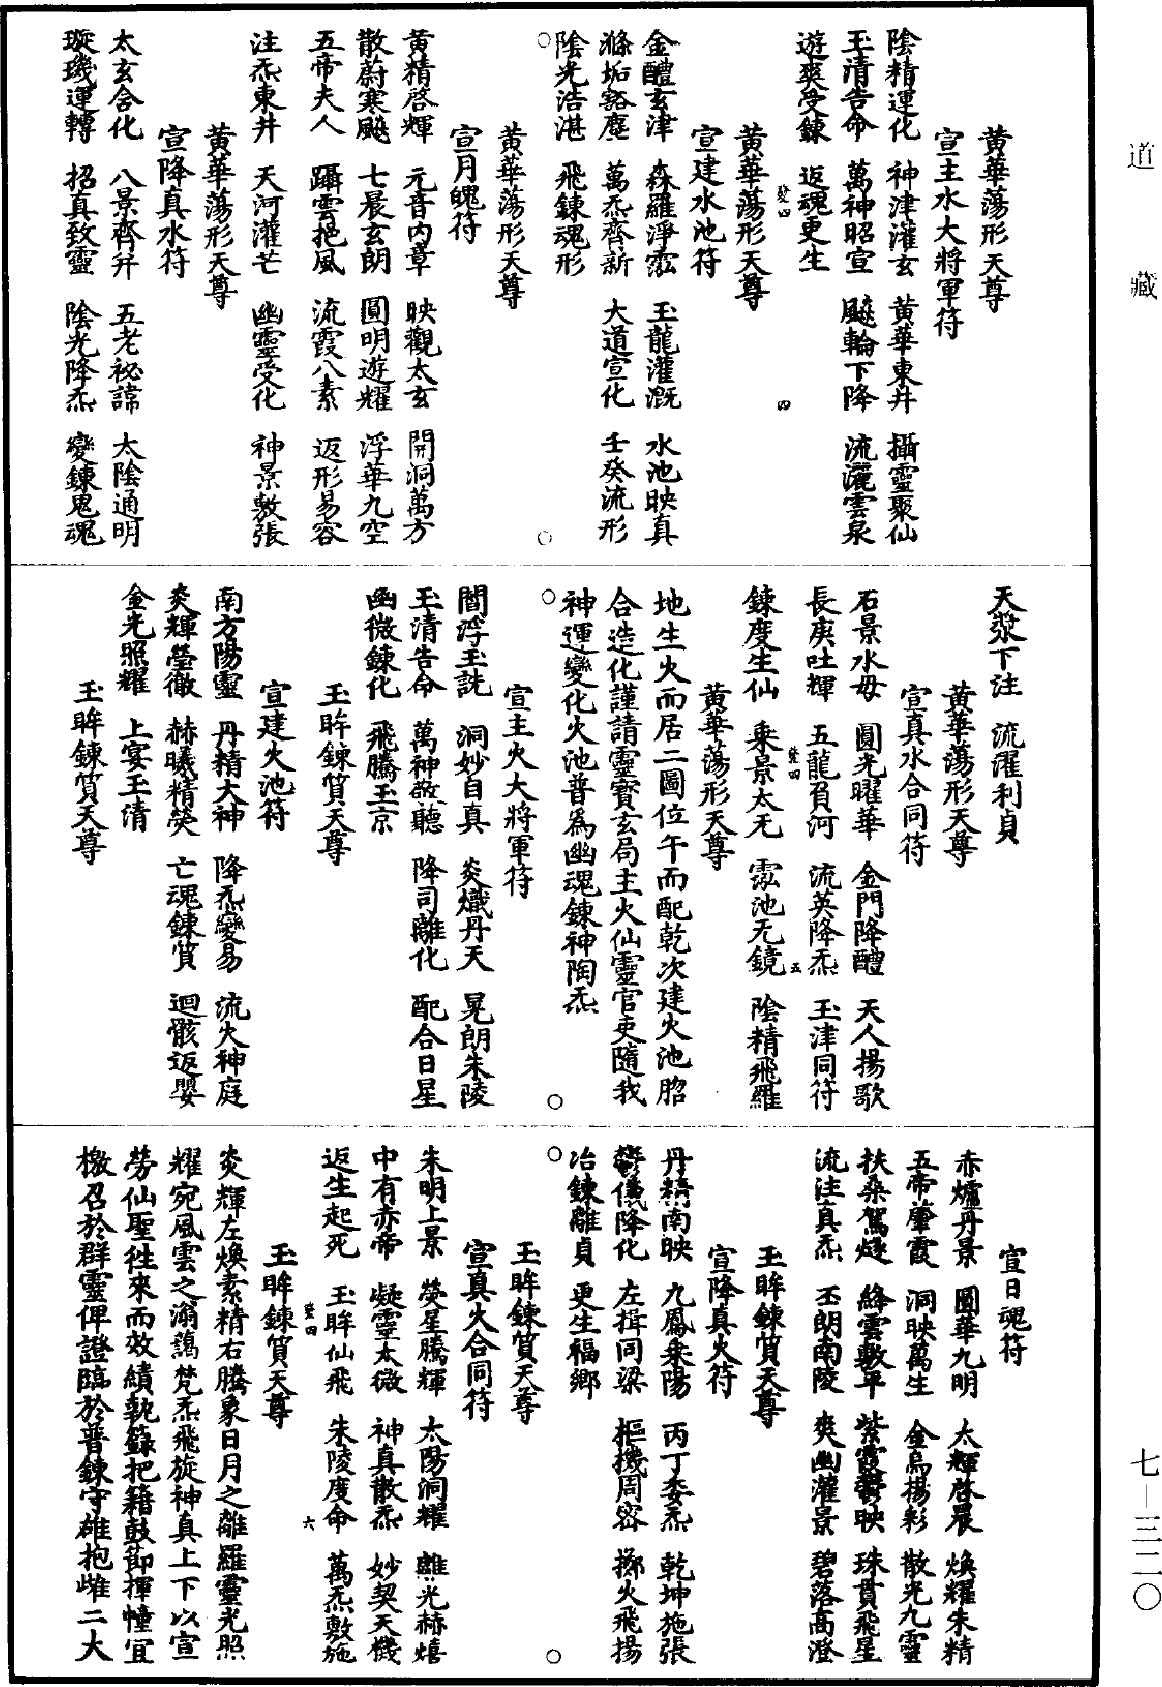 道藏
七—三二〇
黃華蕩形天尊
宣主水大將軍符
陰精運化　神津灌玄　黃華東井　攝靈聚仙
玉清告命　萬神昭宣　飈輪下降　流灑雲泉
遊爽受鍊　返魂更生
發四　四
黃華蕩形天尊
宣建水池符
金醴玄津　森羅淨霐　玉龍灌溉　水池映真
滌垢豁塵　萬炁齊新　大道宣化　壬癸流形
陰光浩湛　飛鍊魂形
黃華蕩形天尊
宣月魄符
黃精啓輝　元音內章　映觀太玄　開洞萬方
散蔚寒飈　七晨玄朗　圓明遊耀　浮華九空
五帝夫人　躡雲挹風　流霞八素　返形易容
注炁東井　天河灌芒　幽靈受化　神景敷張
黃華蕩形天尊
宣降真水符
太玄合化　八景齊升　五老祕諱　太陰通明
璇璣運轉　招真致靈　陰光降炁　變鍊鬼魂
天漿下注　流濯利貞
黃華蕩形天尊
宣真水合同符
石景水母　圓光曜華　金門降醴　天人揚歌
長庚吐輝　五龍負河　流英降炁　玉津同符
發四　五
鍊度生仙　乘景太无　霐池无鏡　陰精飛羅
黃華蕩形天尊
地生火而居二圖位午而配乾次建火池脗
合造化謹請靈寳玄局主火仙靈官吏隨我
神運變化火池普為幽魂鍊神陶炁
宣主火大將軍符
閻浮玉詵　洞妙自真　炎熾丹天　晃朗朱陵
玉清告命　萬神敬聽　降司離化　配合日星
幽微鍊化　飛騰玉京
玉眸鍊質天尊
宣建火池符
南方陽靈　丹精大神　降炁變易　流火神庭
炎輝瑩徹　赫曦精熒　亡魂鍊質　迴骸返嬰
金光照耀　上宴玉清
玉眸鍊質天尊
宣日魂符
赤爐丹景　圓華九明　太輝啓晨　煥耀朱精
五帝肇霞　洞映萬生　金烏揚彩　散光九靈
扶桑駕燧　絳雲敷平　紫霞鬱映　珠貫飛星
流注真炁　丕朗南陵　爽幽灌景　碧落高澄
玉眸鍊質天尊
宣降真火符
丹精南映　九鳳乘陽　丙丁委炁　乾坤施張
鬱儀降化　左揖同梁　樞機周密　擲火飛揚
冶鍊離貞　更生福鄉
玉眸鍊質天尊
宣真火合同符
朱明上景　熒星騰輝　太陽洞耀　離光赫熺
中有赤帝　凝靈太微　神真散炁　妙契天機
返生起死　玉眸仙飛　朱陵度命　萬炁敷施
發四　六
玉眸鍊質天尊
炎輝左煥素精右騰象日月之離羅靈光照
耀宛風雲之滃藹梵炁飛旋神真上下以宣
勞仙聖徃來而效績執籙把籍鼓節揮幢宜
檄召於群靈俾證臨於普鍊守雄抱雌二大